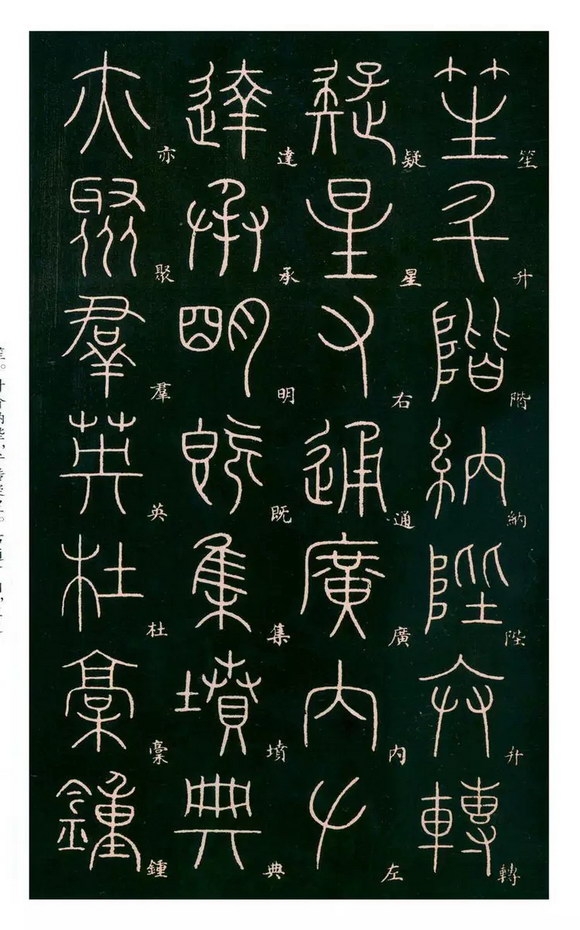 笙升階納陛弁轉
疑星右通廣内左
達承明既集墳典
亦聚羣英杜稾鍾